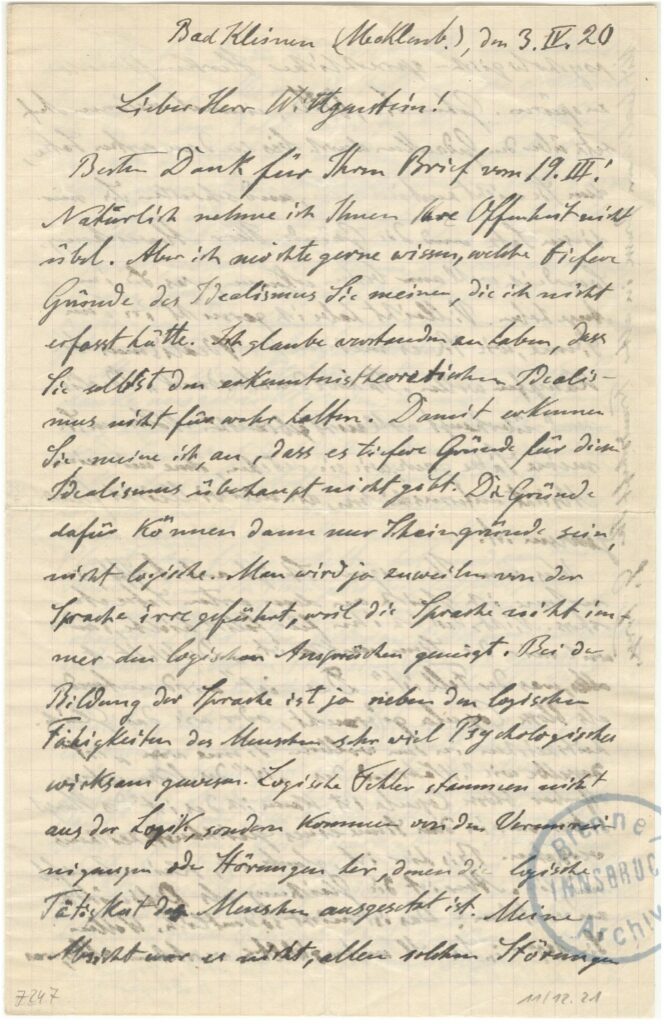 Bad Kleinen (Mecklenb.), den 3. IV. 20
Lieber Herr Wittgenstein!
Besten Dank für Ihren Brief vom 19. III.!
Natürlich nehme ich Ihnen Ihre Offenheit nicht
übel. Aber ich möchte gerne wissen, welche tiefere
Gründe des Idealismus Sie meinen, die ich nicht
erfasst hätte. Ich glaube verstanden zu haben, dass
Sie selbst den erkenntnistheoretischen Idealis-
mus nicht für wahr halten. Damit erkennen
Sie, meine ich, an, dass es tiefere Gründe für diesen
Idealismus überhaupt nicht gebt. Die Gründe
dafür können dann nur Scheingründe sein,
nicht logische. Man wird ja zuweilen von der
Sprache irre geführt, weil die Sprache nicht im-
mer den logischen Ansprüchen genügt. Bei der
Bildung der Sprache ist ja neben den logischen
Fähigkeiten des Menschen sehr viel Psychologisches
wirksam gewesen. Logische Fehler stammen nicht
aus der Logik, sondern kommen von den Verunrei-
nigungen oder Störungen her, denen die logische
Tätigkeit des Menschen ausgesetzt ist. Meine
Absicht war es nicht, allen solchen Störungen
Brenner-
INNSBRUCK
Archiv
7247
11/12.21